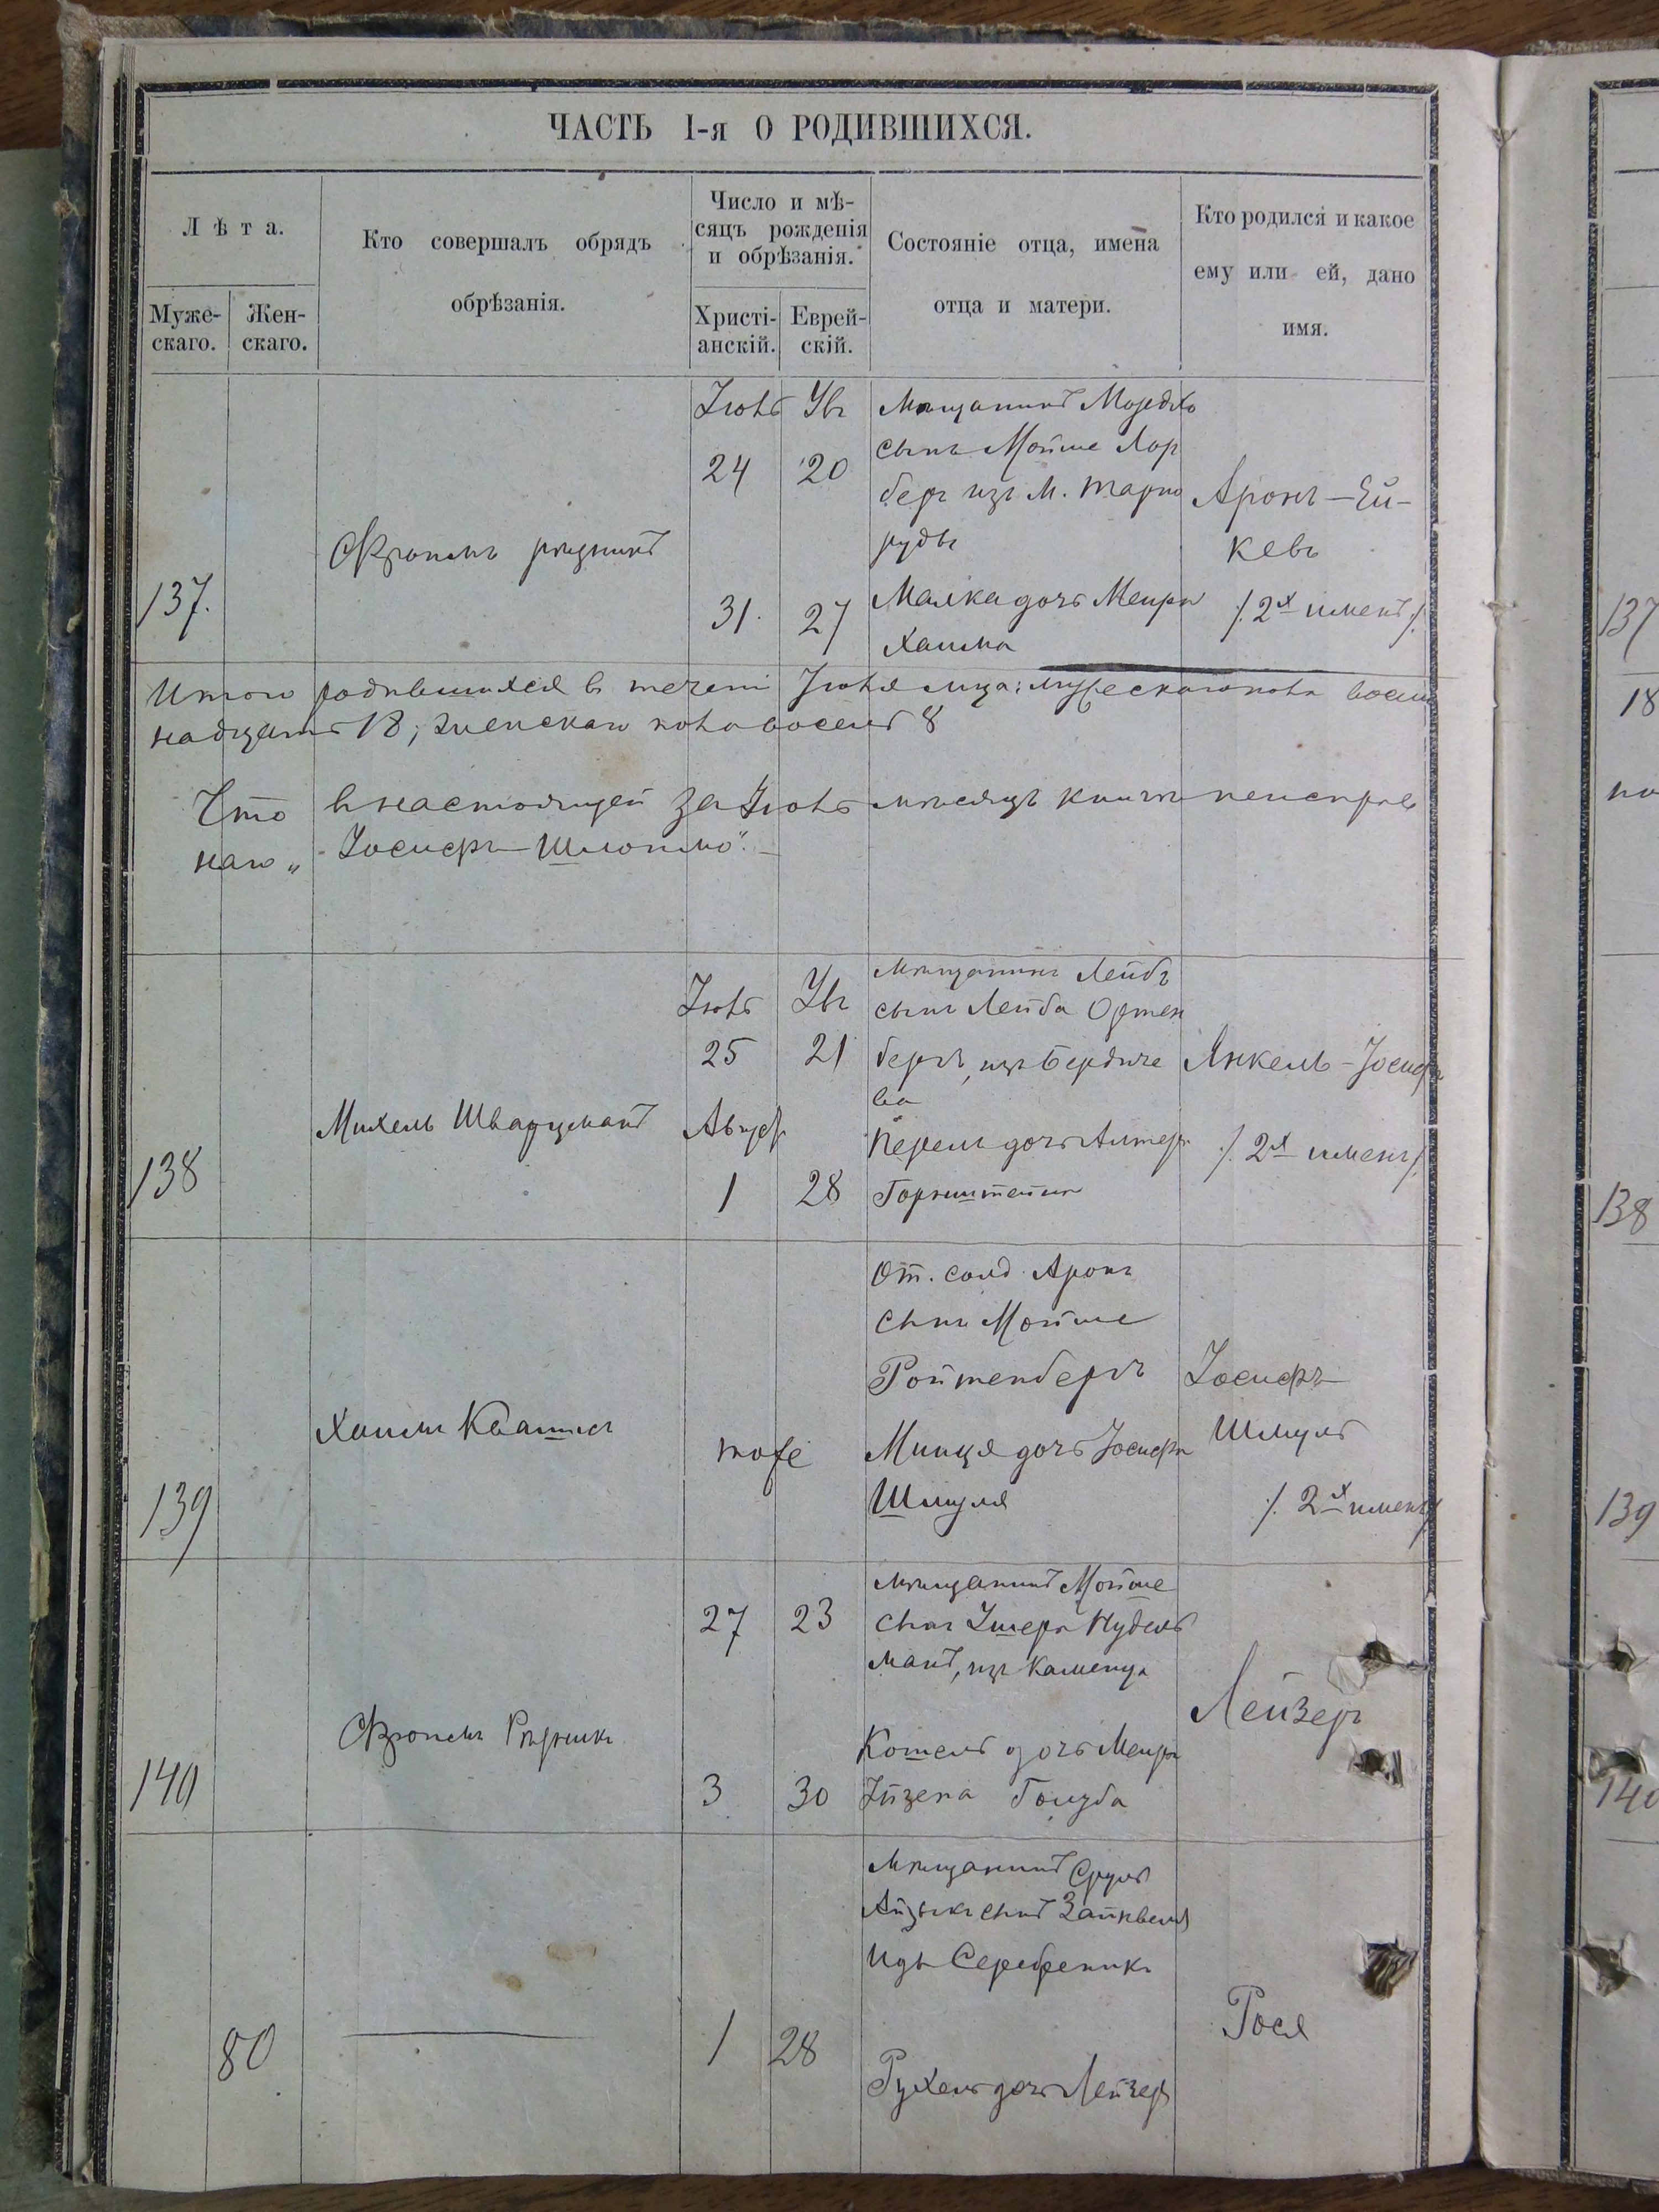 ЧАСТЬ I-я О РОДИВШИХСЯ.
Лѣта.
Муже-
скаго.
Жен-
скаго.
Кто совершалъ обрядъ
обрѣзанія.
Число и мѣ-
сяцъ рожденія
и обрѣзанія.
Христі-
анскій.
Еврей-
скій.
Состояніе отца, имена
отца и матери.
Кто родился и какое
ему или ей, дано
имя.
137.
Фроимъ рѣзникъ
Іюль
24
31.
Ув
20
27
Мѣщанинъ Мордко
сынъ Мойше Лор
беръ изъ М. Тарно
руды
Малка дочь Меира
Хаима
Аронъ-Ей-
кевъ
/. 2х именъ /.
Итого родившихся в течени Іюля мца: мужескаго пола восем
надцать 18, женскаго пола восемь 8
Что в настоящей за Іюль мѣсяцъ книги неисправ
наго „Іосифъ-Шлоимо". -
138
Михель Шварцманъ
Іюль
25
Август
1
Ув
21
28
Мѣщанинъ Лейбъ
сынъ Лейба Ортен
бергъ, изъ Бердиче
ва
Перель дочь Алтера
Горнштейна
Янкель-Іосифъ
/. 2х именъ /.
139
Хаимъ Квашис
тоже
От. солд. Аронъ
сынъ Мойше
Ройтенбергъ
Минця дочь Іосифа
Шмуля
Іосифъ
Шмуль
/. 2х именъ /
140
Фроимъ Рѣзникъ
27
3
23
30
Мѣщанинъ Мойше
сынъ Ушера Нудель
манъ, изъ Каменца
дочь Меира
Голуба
Лейзеръ
80
1
28
Мѣщанинъ Сруль
Айзыкъ сынъ Зайнвеля
Серебреникъ
Рухель дочь Лейзера
Рося
137
18
по
138
139
140